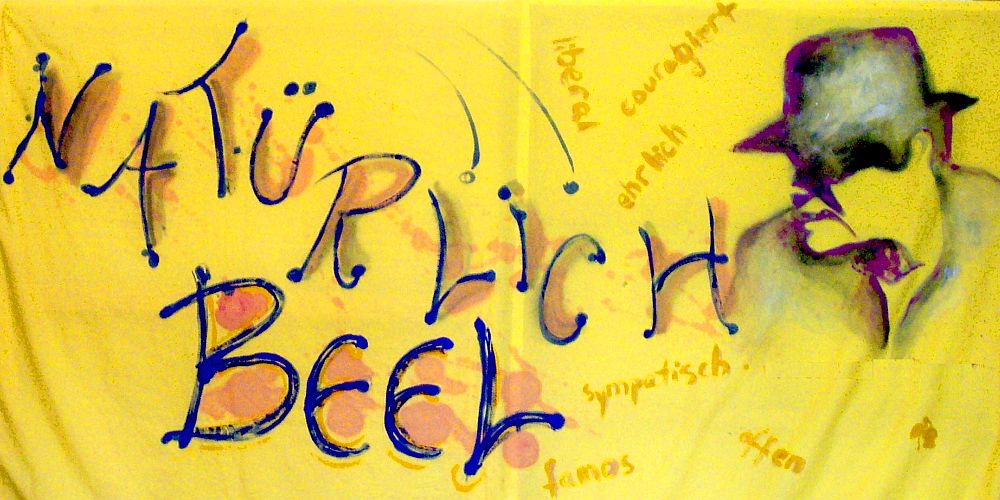 NATÜRLICH!!
BEEL
liberal
couragiert
ehrlich
sympatisch.
famos
offen